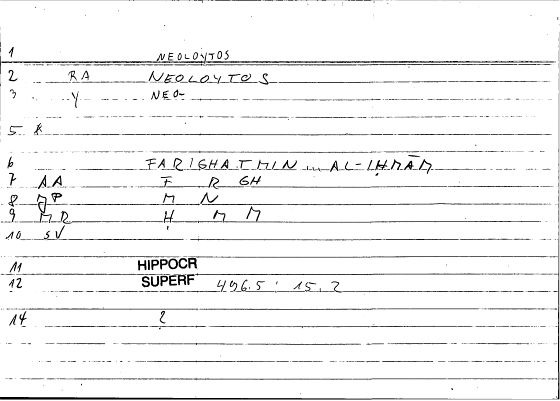 1 NEOLOYTOS
2 RA NEOLOYTOS
3 Y NEO-
5 *
6 FARIGHAT MIN ... AL-IḤMĀM
7 AA F R GH
8 MP M N
9 MR Ḥ M M
10 SV
11 HIPPOCR
12 SUPERF 496.5 15.2
14 2